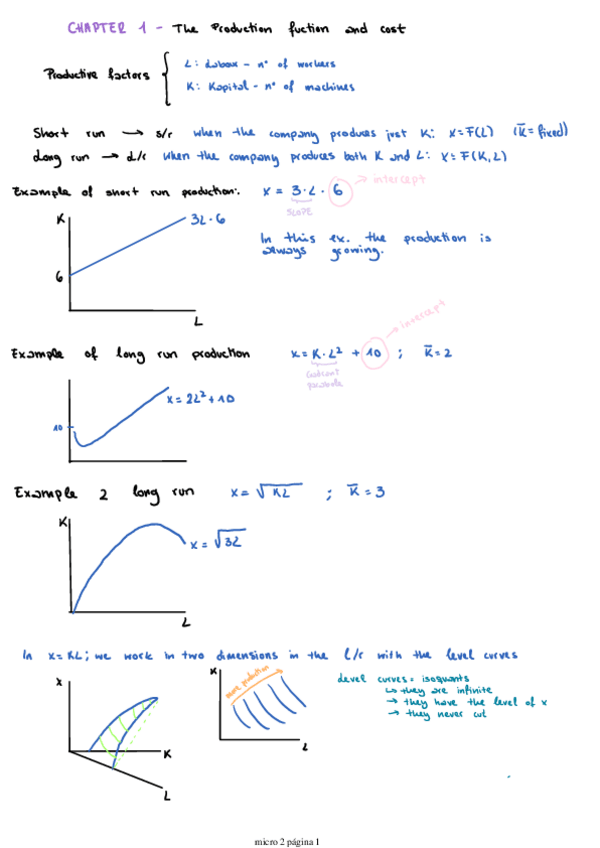 CHAPTER 1 - The Production fuction and cost
Productive factors { L: Labour - nº of workers
K: Kapital - nº of machines
Short run → s/r when the company produces just K: x=F(L) (K̅=fixed)
Long run → L/r when the company produces both K and L: x=F(K,L)
Example of short run production: x = 3·L · 6 → intercept
SLOPE
K
3L·6
In this ex. the production is
always growing.
6
L
→ intercept
Example of long run production x=K·L² + 10 ; K̅=2
parabole
x=2L²+10
10
Example 2 long run x=√KL ; K̅=3
K
x=√3L
L
In x=KL; we work in two dimensions in the L/r with the level curves
x
K
L
K
more production
L
Level curves = isoquants
↳ they are infinite
→ they have the level of x
→ they never cut
micro 2 página 1